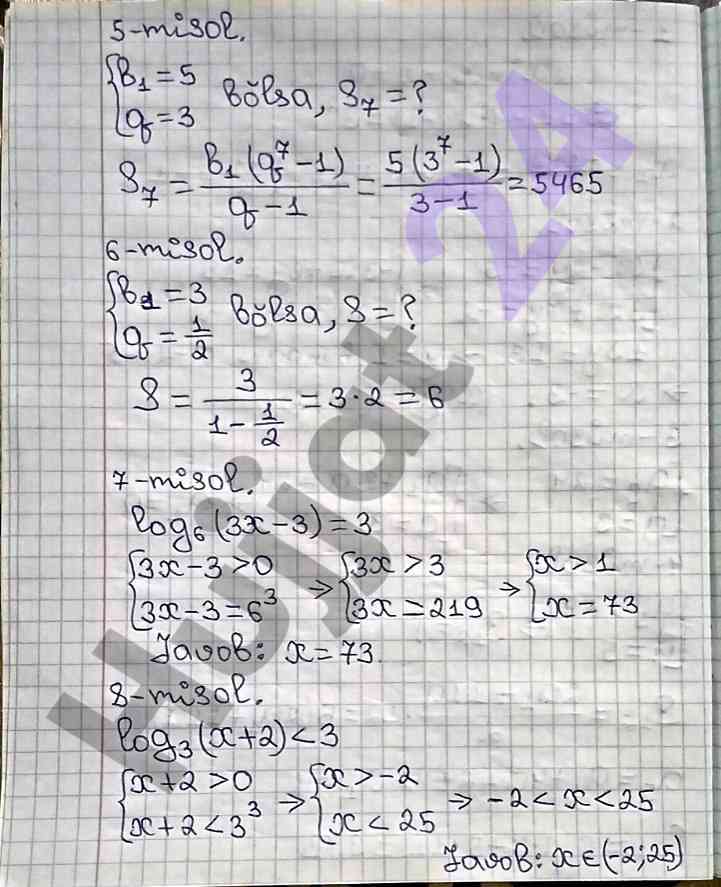 5-misol.
{b₁=5
{q=3 bŏlsa, S₇=?
S₇ = b₁(q⁷-1)/(q-1) = 5(3⁷-1)/(3-1) = 5465
6-misol.
{b₁=3
{q=1/2 bŏlsa, S=?
S = 3/(1-1/2) = 3·2 = 6
7-misol.
log₆(3x-3)=3
{3x-3>0 ⇒ {3x>3 ⇒ {x>1
{3x-3=6³ {3x=219 {x=73
Javob: x=73.
8-misol.
log₃(x+2)<3
{x+2>0 ⇒ {x>-2 ⇒ -2<x<25
{x+2<3³ {x<25
Javob: x∈(-2;25)
Hujjat 24